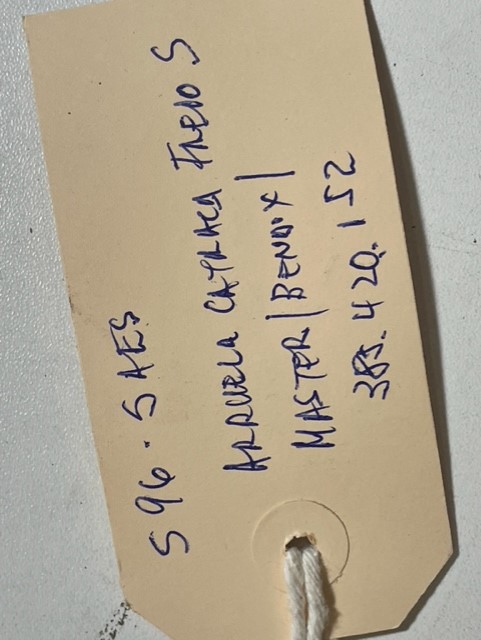 596-5 AES
ARRUELA CATRACA FREIO S
MASTER/BENDIX/
385.420.152